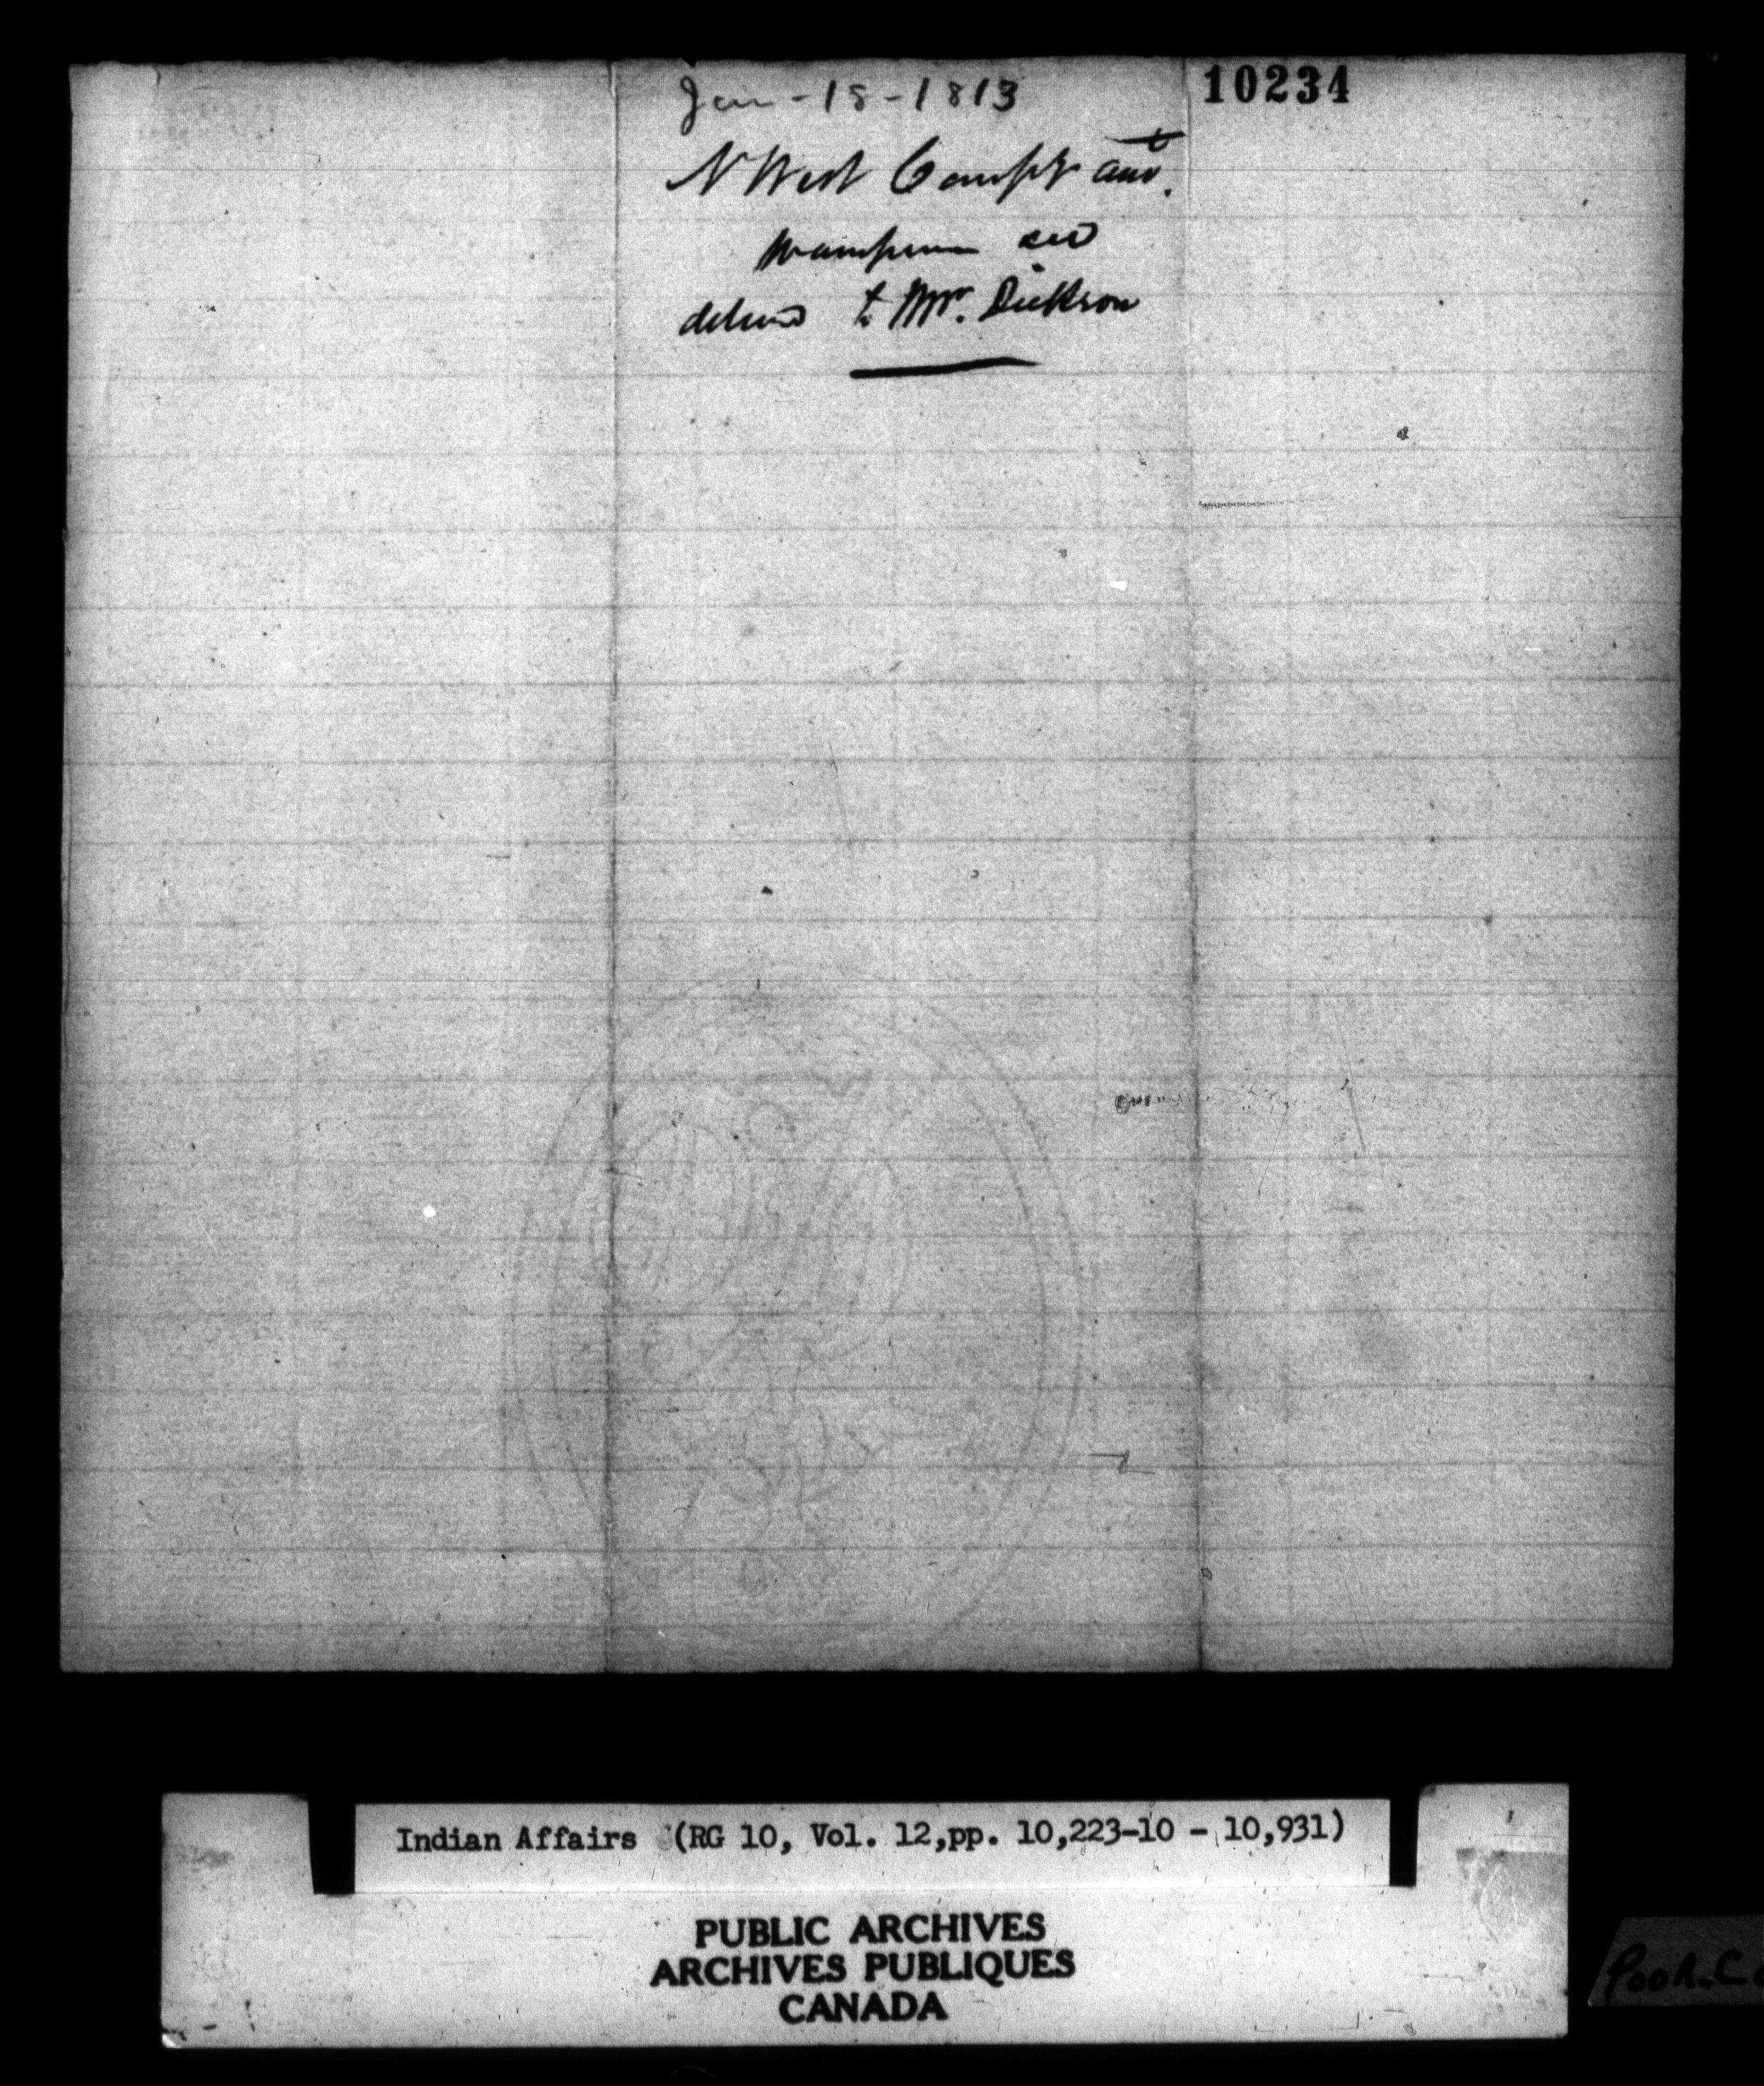 Jan - 18 - 1813
10234
N West Compy
wampum
to Mr. Dickson
Indian Affairs (RG 10, Vol. 12, pp. 10,223-10 - 10,931)
PUBLIC ARCHIVES
ARCHIVES PUBLIQUES
CANADA